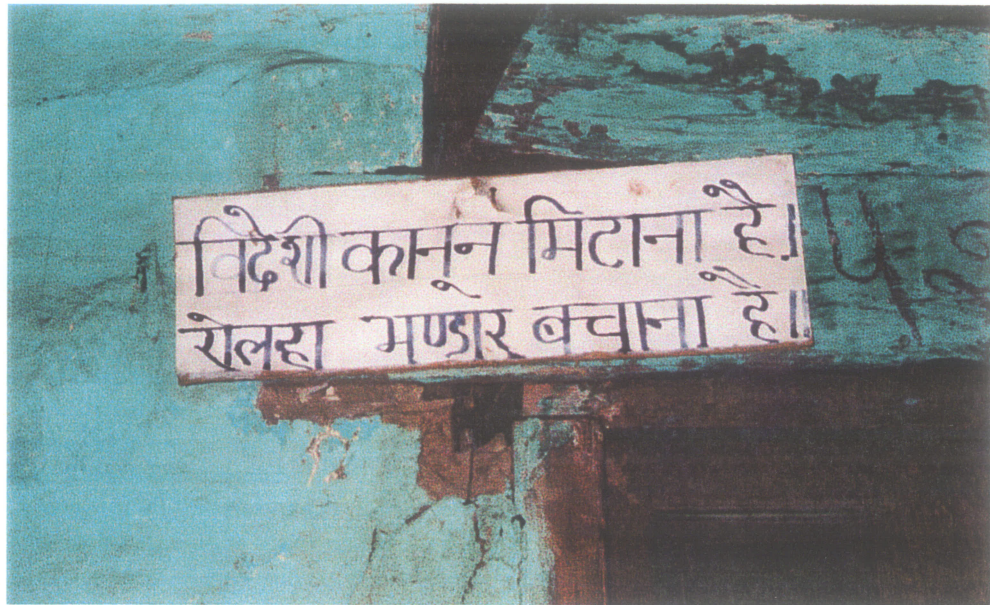 विदेशी कानून मिटाना है।
रोलहा भण्डार बचाना है॥